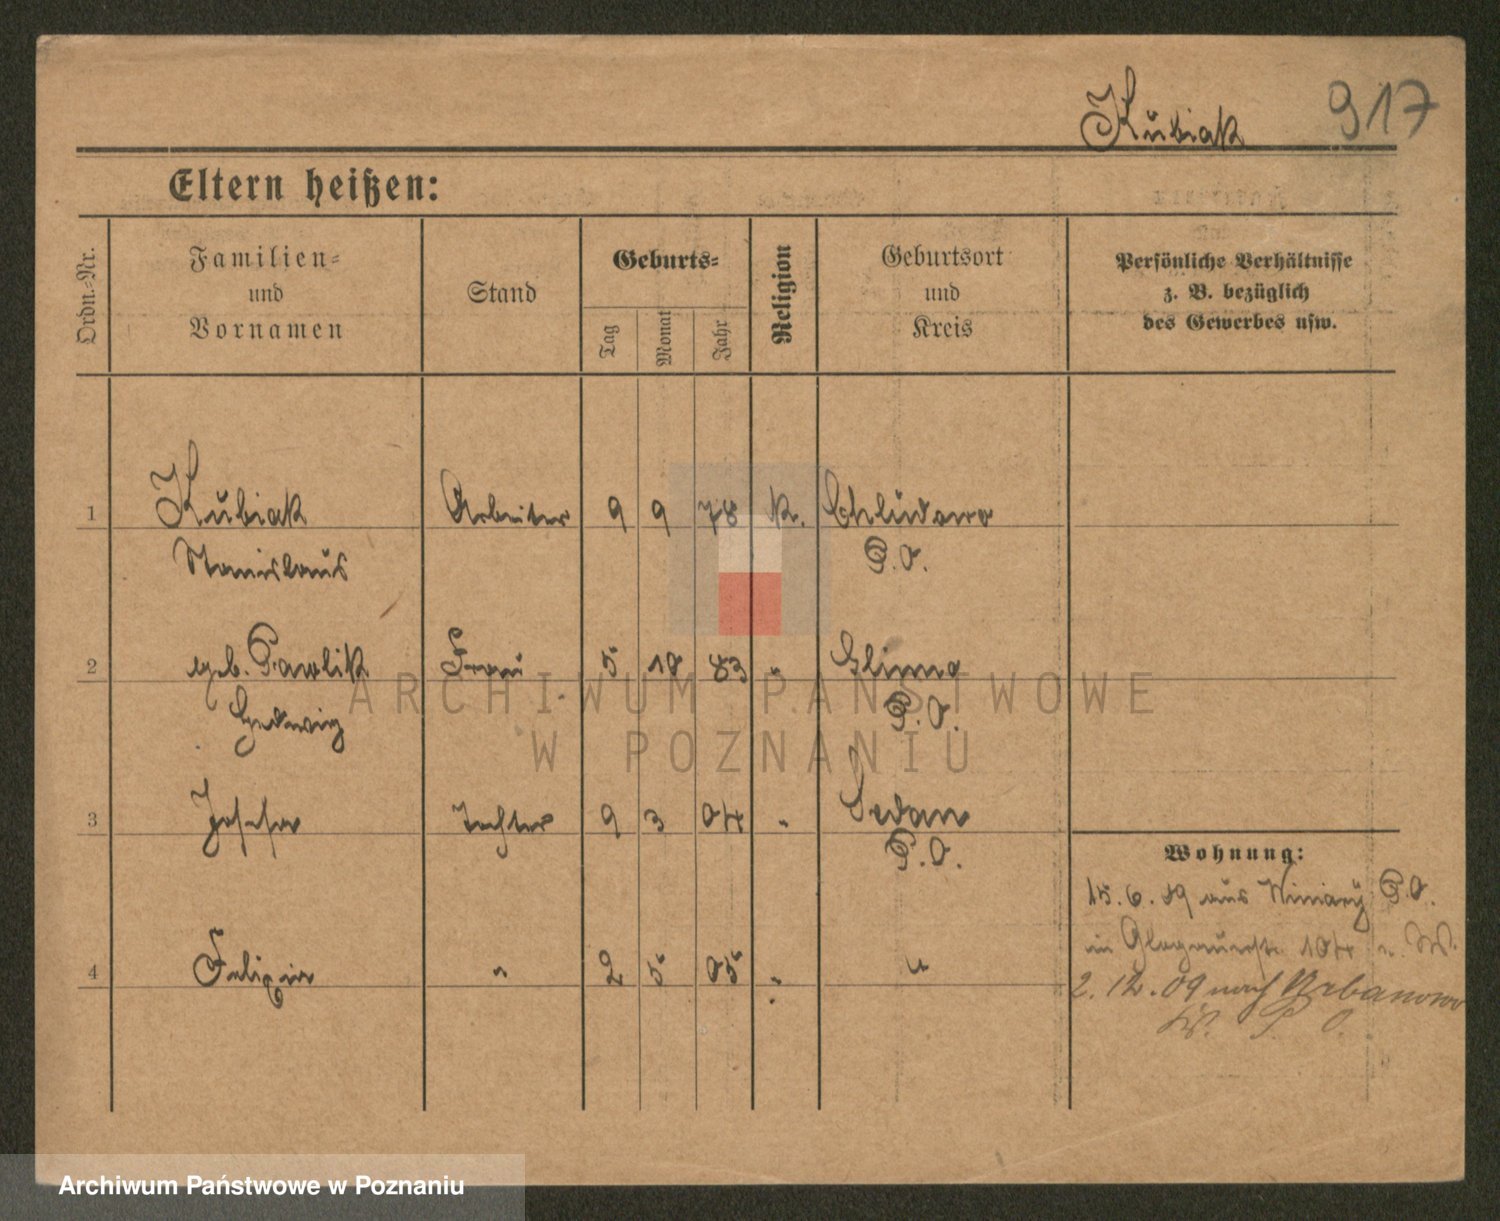 Kubiak 917
Eltern heißen:
Ordn.-Nr.
Familien-
und
Vornamen
Stand
Geburts-
Tag
Monat
Jahr
Religion
Geburtsort
und
Kreis
Persönliche Verhältnisse
z. B. bezüglich
des Gewerbes usw.
1 Kubiak Arbeiter 9 9 78 k. Chludowo
Stanislaus P.O.
2 geb. Pawlik Frau 5 10 83 " Glinno
Hedwig P.O.
3 Josefa Tochter 9 3 04 " Sedan
P.O.
4 " 2 5 05 " "
Wohnung:
15.6.09 aus Winiary P.O.
in 104 W.
2.12.09 nach Urbanowo
P. O.
ARCHIWUM PAŃSTWOWE
W POZNANIU
Archiwum Państwowe w Poznaniu